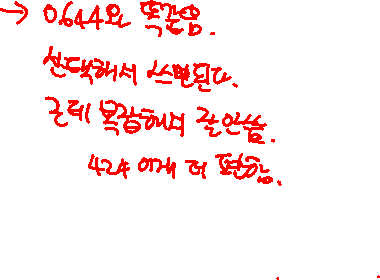 → 0.644와 똑같음.
선택해서 쓰면된다.
근데 복잡해서 잘안씀.
424 이게 더 편함.